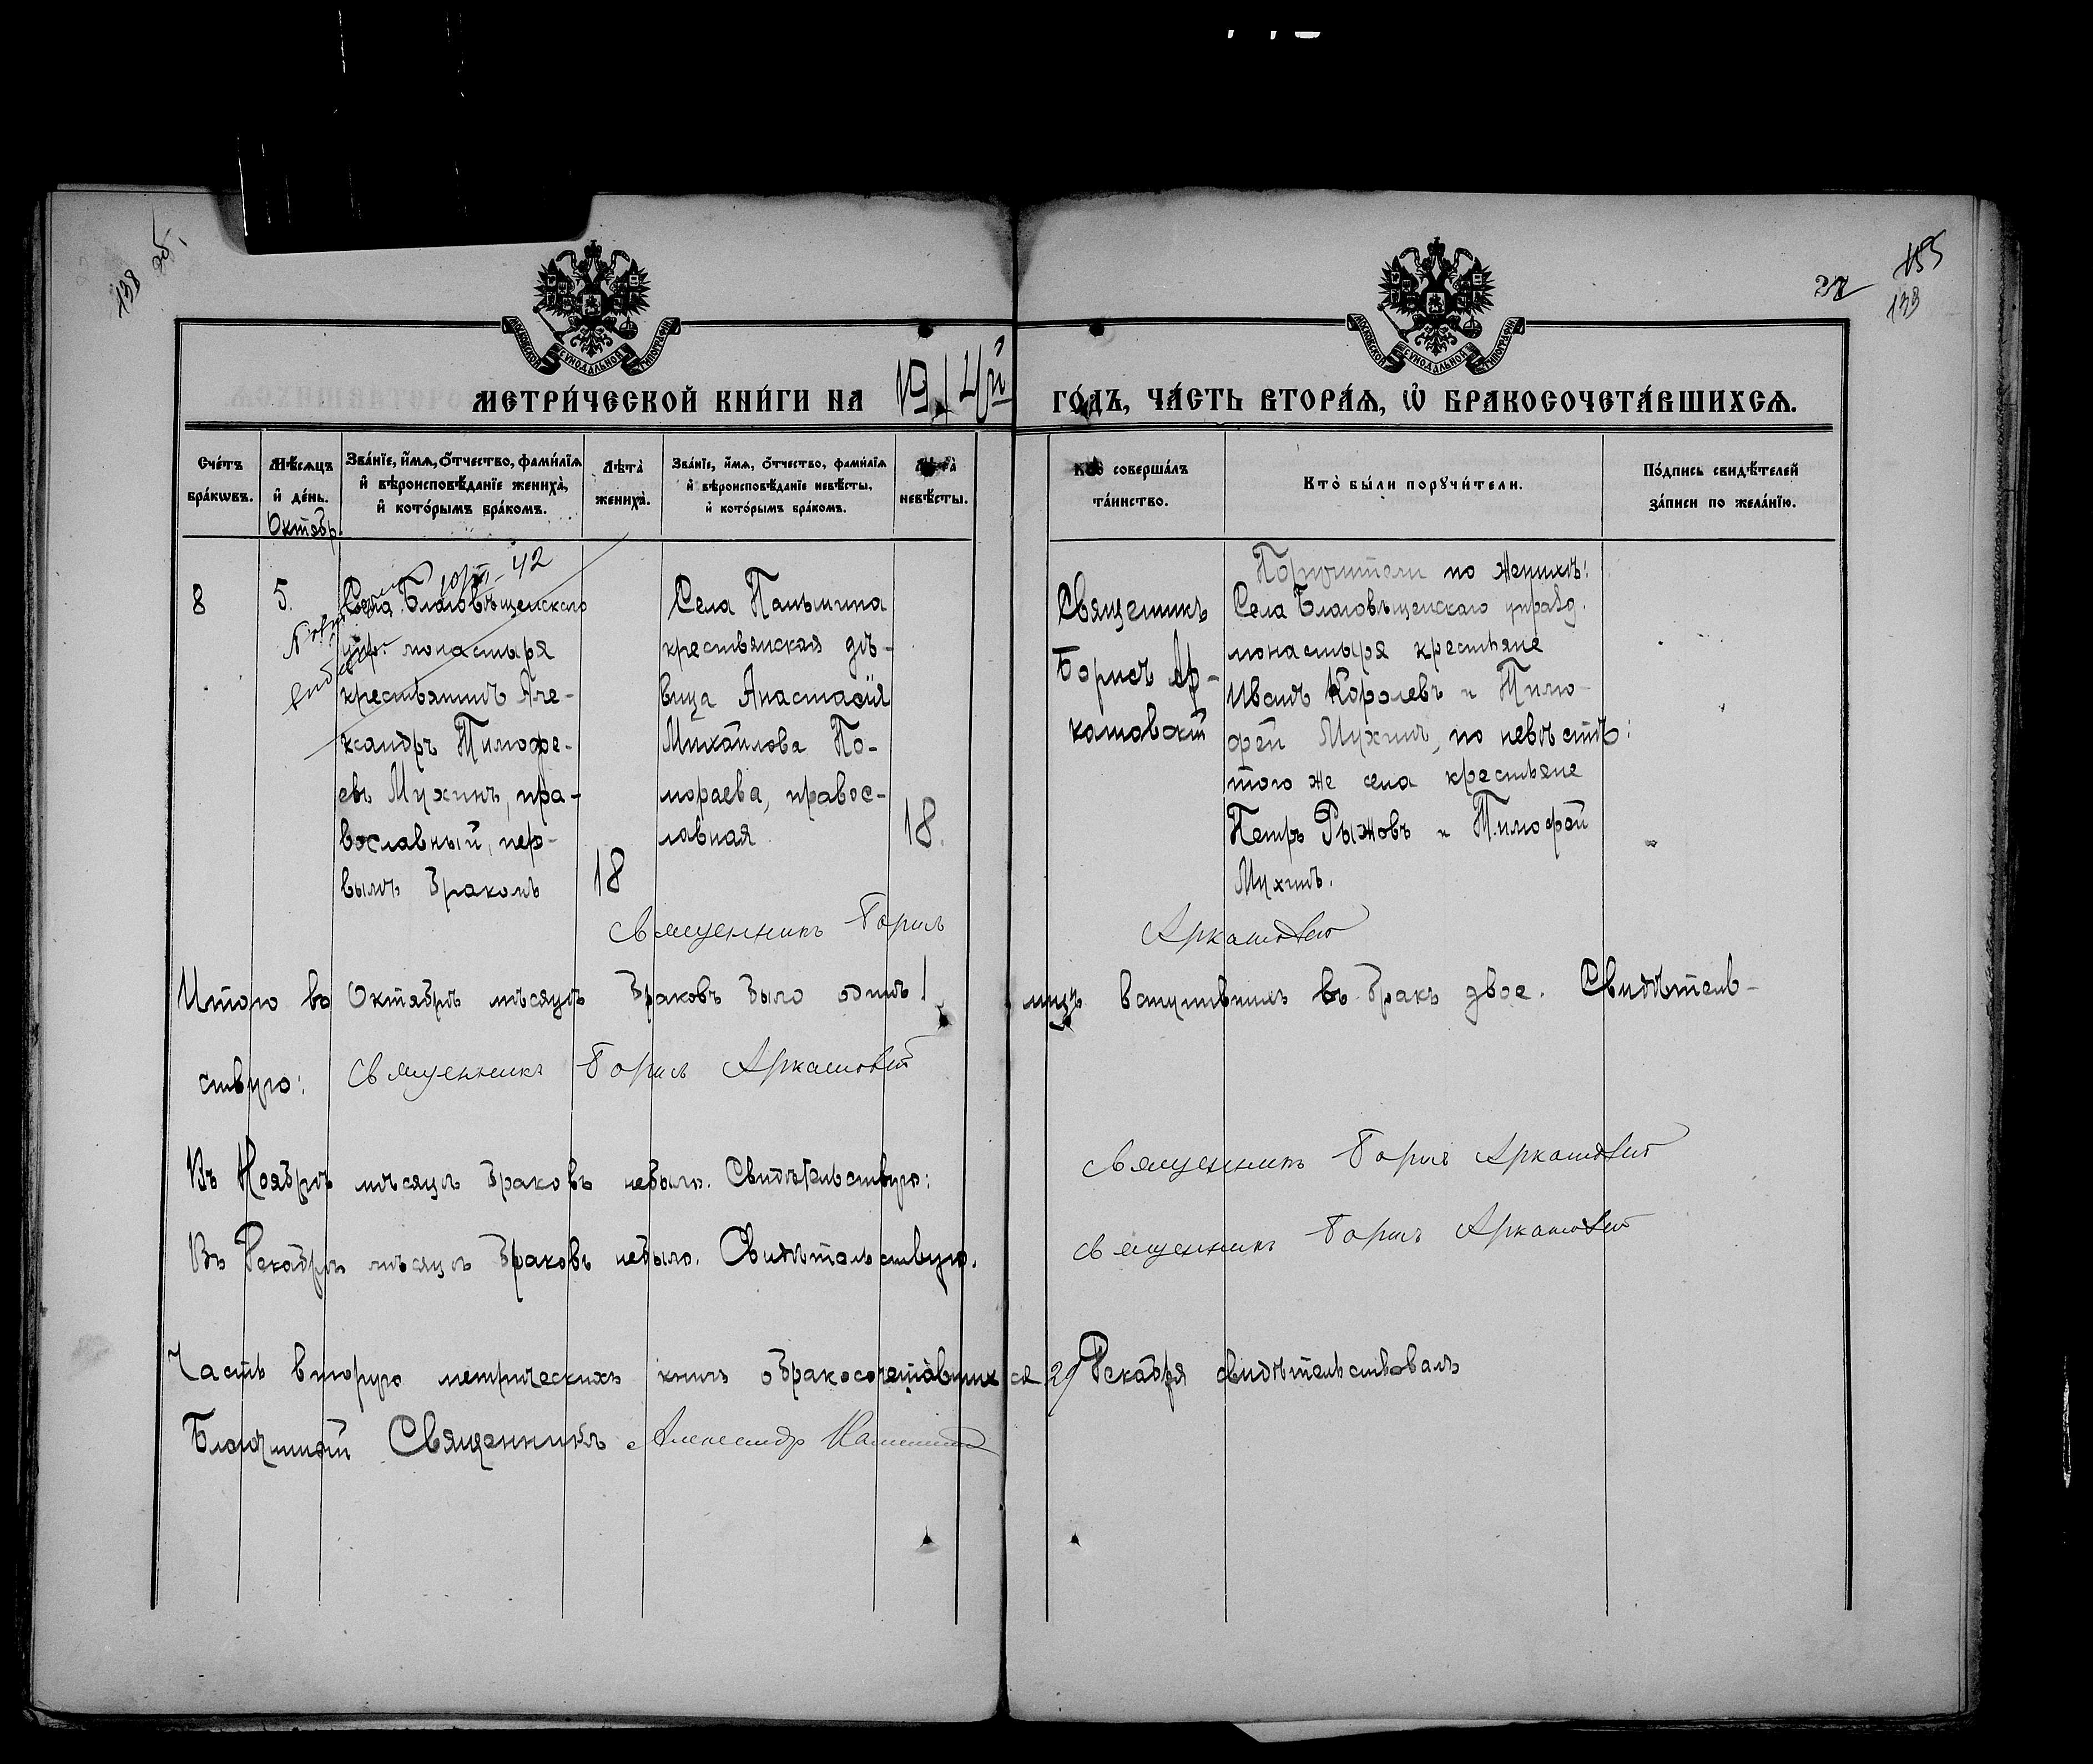 138 об.
32
155
139
МОСКОВСКОЙ СѴНОДАЛЬНОЙ ТИПОГРАФІИ
МОСКОВСКОЙ СѴНОДАЛЬНОЙ ТИПОГРАФІИ
МЕТРИ́ЧЕСКОЙ КНИ́ГИ НА 1914й ГО́ДЪ, ЧА́СТЬ ВТОРА́Я, Ѡ҆ БРАКОСОЧЕТА́ВШИХСЯ.
Сче́тъ
бра́кѡвъ.
Мѣ́сяцъ
и҆ де́нь.
Октябр.
Зва́нїе, и҆́мя, ѻ҆́тчество, фами́лїя
и҆ вѣроисповѣ́данїе жениха̀,
и҆ кото́рымъ бра́комъ.
Лѣта̀
жениха̀.
Зва́нїе, и҆́мя, ѻ҆́тчество, фами́лїя
и҆ вѣроисповѣ́данїе невѣ́сты,
и҆ кото́рымъ бра́комъ.
Лѣта̀
невѣ́сты.
Кто̀ соверша́лъ
та́инство.
Кто̀ бы́ли порꙋчи́тели.
По́дпись свидѣ́телей
за́писи по жела́нїю.
8
5.
42
Села Благовѣщенскаго
упр. монастыря
крестьянинъ Але-
ксандръ Тимофе-
евъ Мухинъ, пра-
вославный, пер-
вымъ бракомъ
18
Села Паньшина
крестьянская дѣ-
вица Анастасія
Михаилова По-
мораева, правос-
лавная
18.
Священникъ
Борисъ Ар-
катовскій
Поручители по женихѣ:
Села Благовѣщенскаго упразд.
монастыря крестьяне
Иванъ Королевъ и Тимо-
фей Мухинъ, по невѣстѣ:
того же села крестьяне
Петръ Рыжовъ и Тимофей
Мухинъ.
Священникъ Борисъ Аркатовскій
Итого въ Октябрѣ мѣсяцѣ браковъ было одинъ 1 лицъ вступившихъ въ бракъ двое. Свидѣтель-
ствую: Священникъ Борисъ Аркатовскій
Въ Ноябрѣ мѣсяцѣ браковъ небыло. Свидѣтельствую: Священникъ Борисъ Аркатовскій
Въ Декабрѣ мѣсяцѣ браковъ небыло. Свидѣтельствую. Священникъ Борисъ Аркатовскій
Часть вторую метрическихъ книгъ о бракосочетавшихся 29 Декабря свидѣтельствовалъ
Благочинный Священникъ Александр